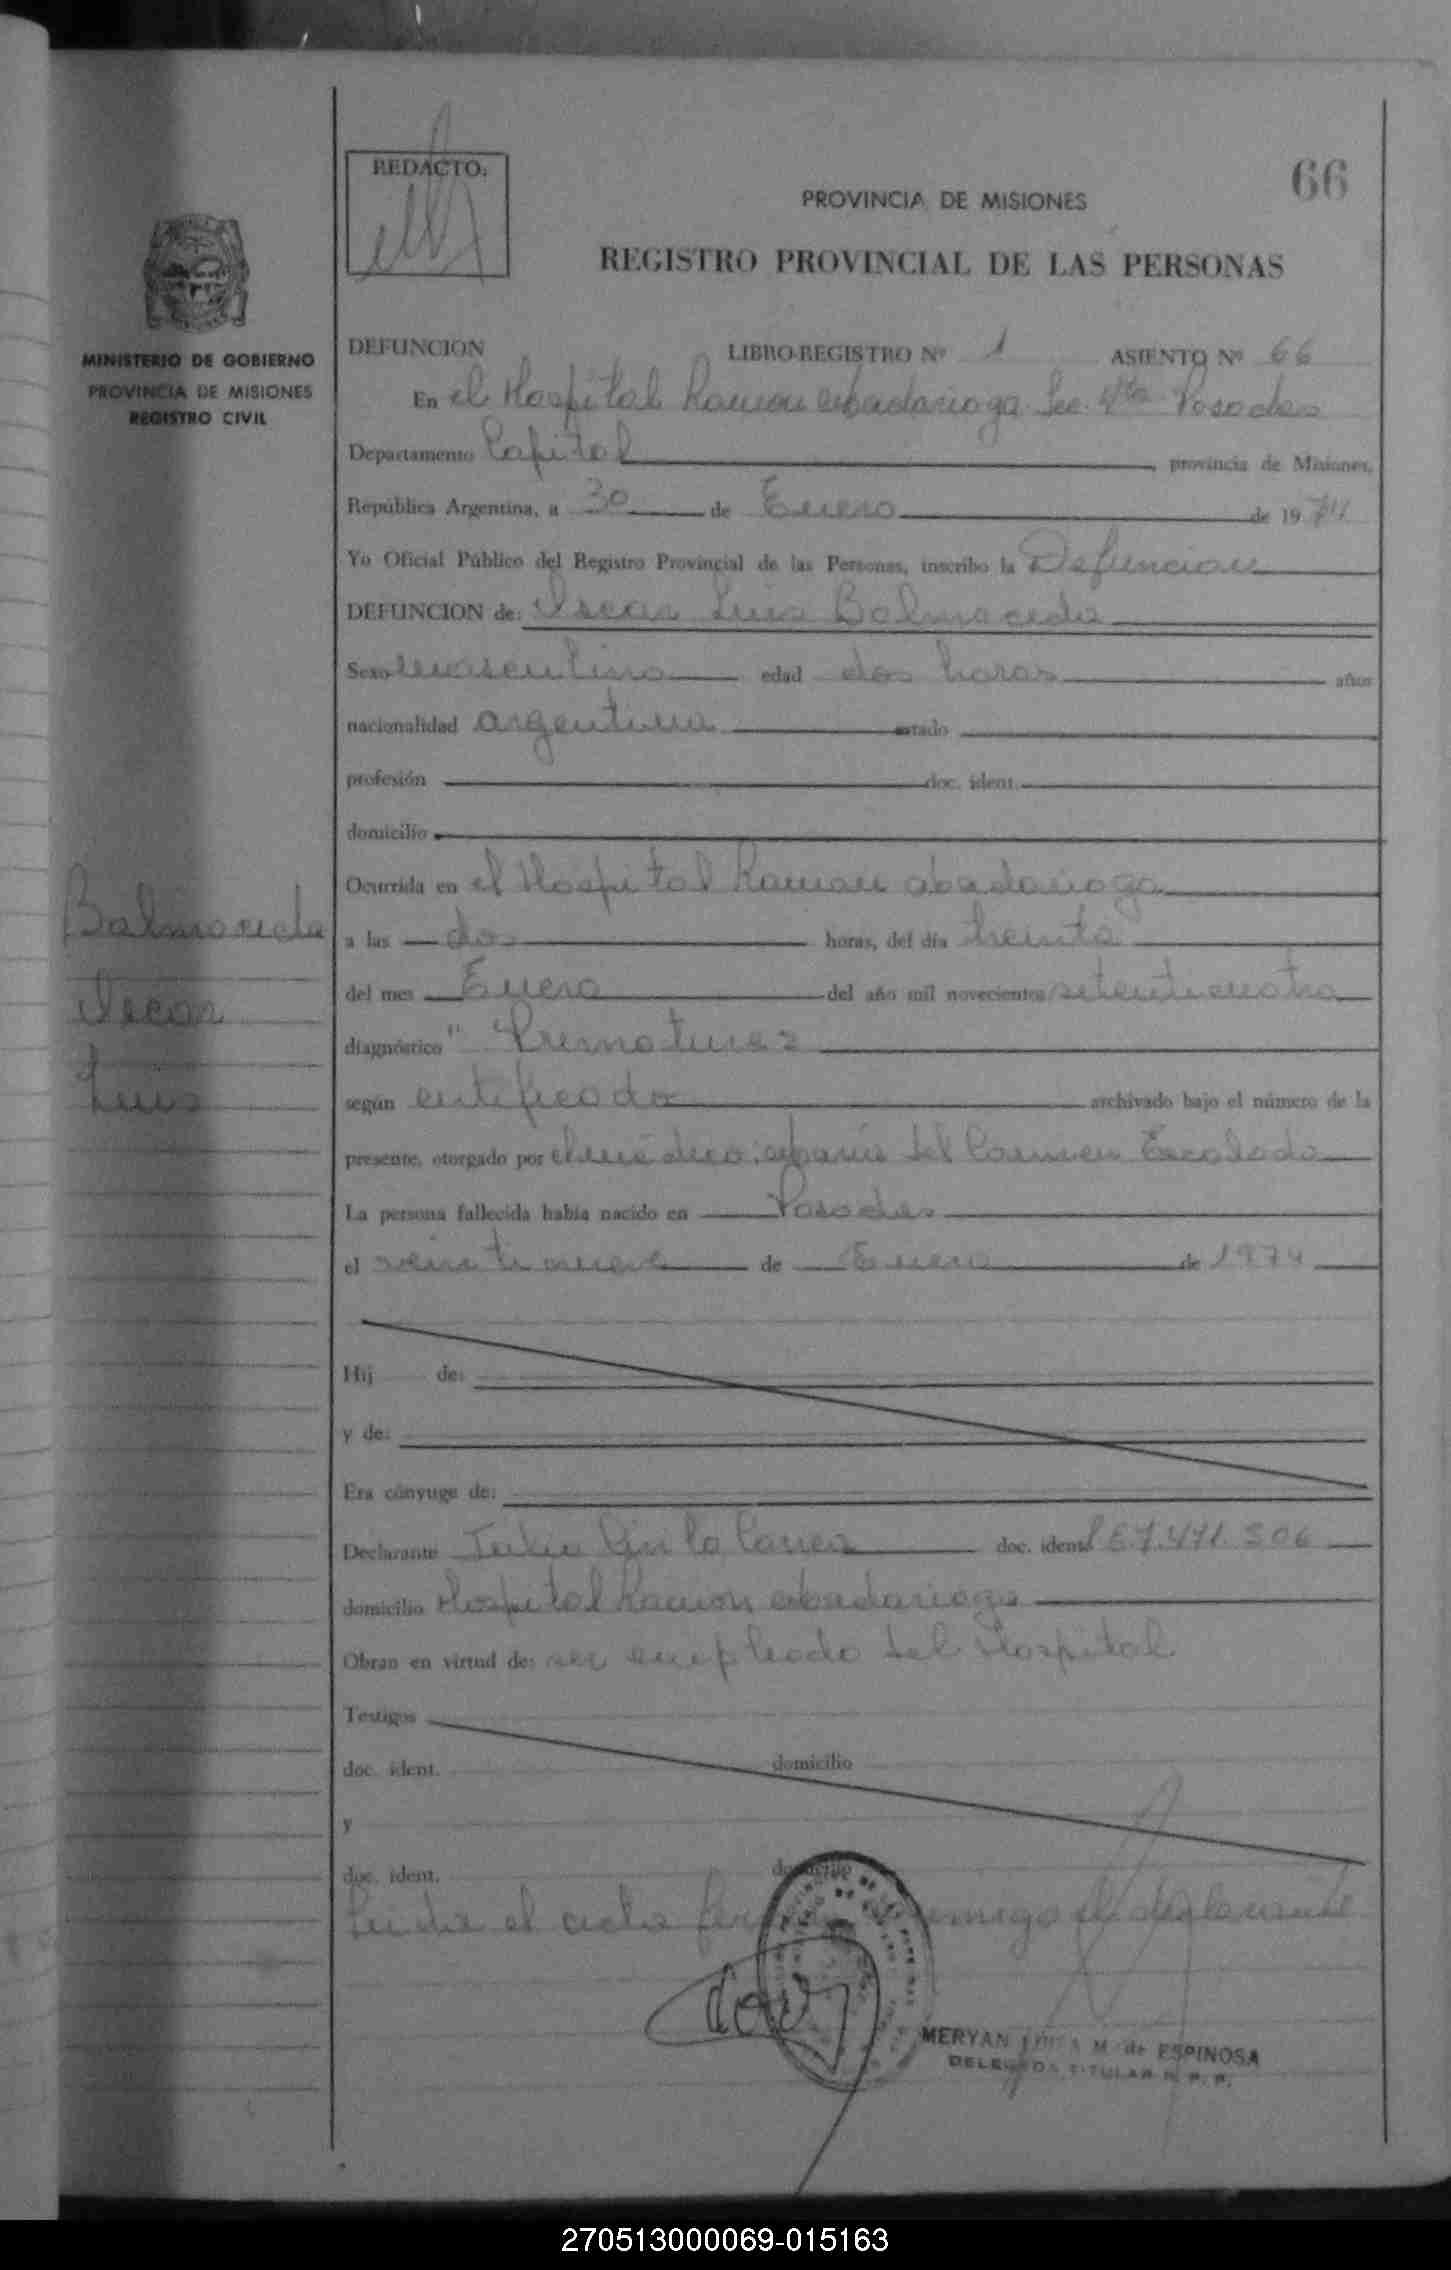 66
REDACTO:
PROVINCIA DE MISIONES
REGISTRO PROVINCIAL DE LAS PERSONAS
MINISTERIO DE GOBIERNO
PROVINCIA DE MISIONES
REGISTRO CIVIL
DEFUNCION LIBRO-REGISTRO Nº 1 ASIENTO Nº 66
En el Hospital Ramon abadarioga Sec. 4ta Posadas
Departamento Capital provincia de Misiones,
República Argentina, a 30 de Enero de 1974
Yo Oficial Público del Registro Provincial de las Personas, inscribo la Defuncion
DEFUNCION de: Oscar Luis Balmaceda
Sexo masculino edad dos horas años
nacionalidad argentina estado
profesión doc. ident.
domicilio
Ocurrida en el Hospital Ramon abadarioga
Balmaceda
Oscar
Luis
a las dos horas, del día treinta
del mes Enero del año mil novecientos setenticuatro
diagnóstico " Prematurez
según certificado archivado bajo el número de la
presente, otorgado por el médico: María del Carmen Escalada
La persona fallecida había nacido en Posadas
el veintinueve de Enero de 1974
Hij de:
y de:
Era cónyuge de:
Declarante doc. ident. 7.471.306
domicilio Hospital Ramon abadarioga
Obran en virtud de: ser empleado del Hospital
Testigos
doc. ident. domicilio
y
doc. ident. domicilio
Leida el acta conmigo el declarante
MERYAN M. de ESPINOSA
DELEGADA TITULAR R. P. P.
270513000069-015163